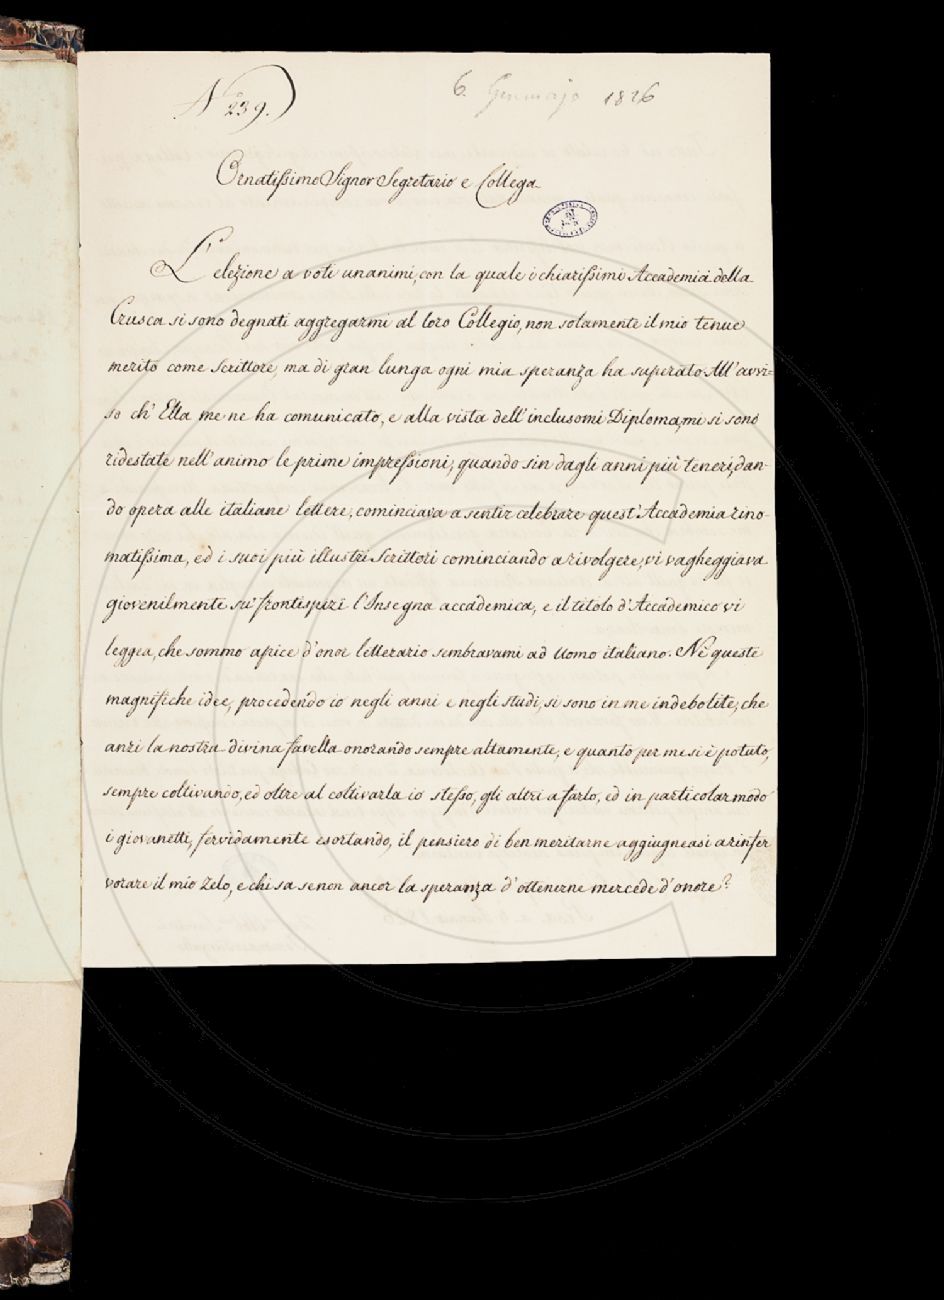 N.º 239.
6. Gennajo 1826
Ornatissimo Signor Segretario e Collega
L'elezione a voti unanimi, con la quale i chiarissimi Accademici della
Crusca si sono degnati aggregarmi al loro Collegio, non solamente il mio tenue
merito come Scrittore, ma di gran lunga ogni mia speranza ha superato. All'avvi=
so ch' Ella me ne ha comunicato, e alla vista dell'inclusomi Diploma, mi si sono
ridestate nell'animo le prime impressioni, quando sin dagli anni più teneri, dan-
do opera alle italiane lettere, cominciava a sentir celebrare quest'Accademia rino-
matissima, ed i suoi più illustri Scrittori cominciando a rivolgere, vi vagheggiava
giovenilmente su' frontispizi l'Insegna accademica, e il titolo d'Accademico vi
leggea, che sommo apice d'onor letterario sembravami ad Uomo italiano. Nè queste
magnifiche idee, procedendo io negli anni e negli studi, si sono in me indebolite, che
anzi la nostra divina favella onorando sempre altamente, e quanto per me si è potuto,
sempre coltivando, ed oltre al coltivarla io stesso, gli altri a farlo, ed in particolar modo
i giovanetti, fervidamente esortando, il pensiero di ben meritarne aggiugneasi a rinfer
vorare il mio Zelo, e chi sa se non ancor la speranza d'ottenerne mercede d'onore?